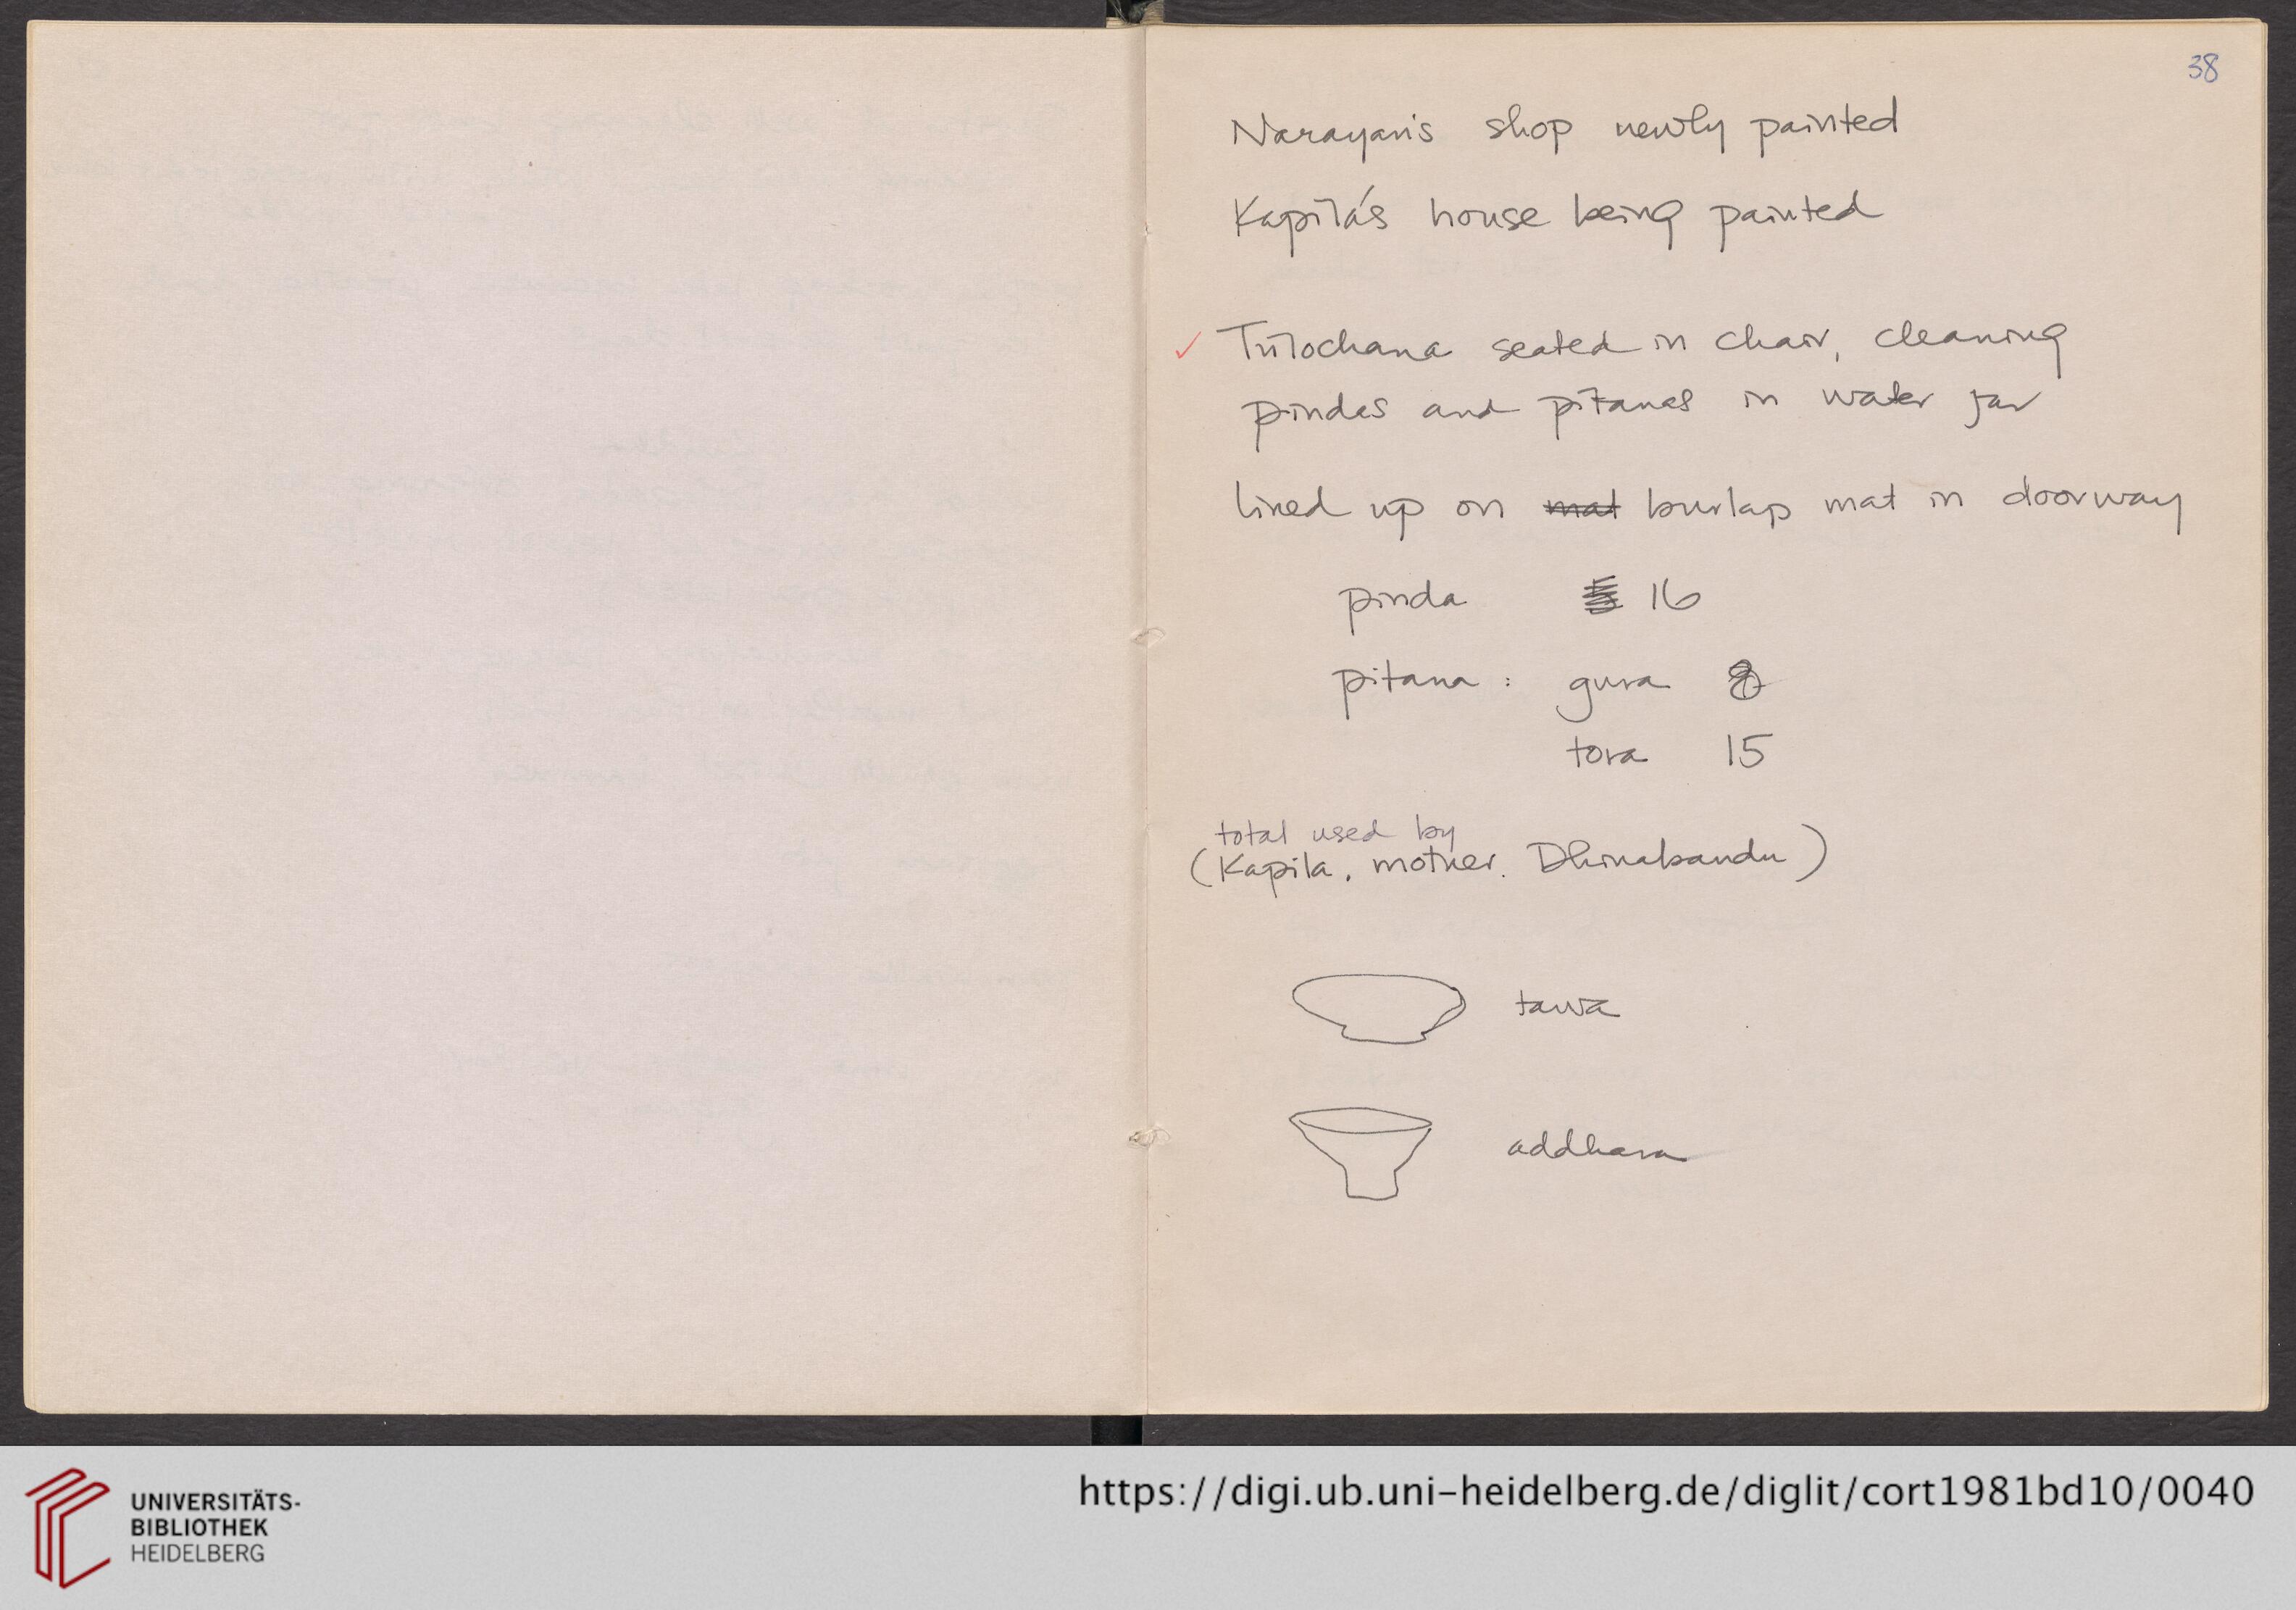 38
Narayan's shop newly painted
Kapila's house being painted
✓ Trilochana seated in chair, cleaning
pindas and pitanas in water jar
lined up on mat burlap mat in doorway
pinda 5 16
pitana : gura 8
tora 15
total used by
(Kapila, mother, Dhinabandu)
tawa
addhara
UNIVERSITÄTS-
BIBLIOTHEK
HEIDELBERG
https://digi.ub.uni-heidelberg.de/diglit/cort1981bd10/0040